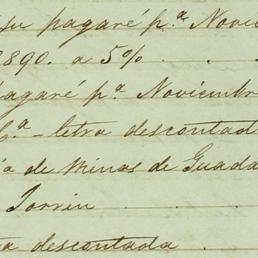 su pagaré p.ª Novie
890. a 5%
pagaré p.ª Noviembr
6.ª - letra descontad
ia de Minas de Guada
Torrin
ra descontada